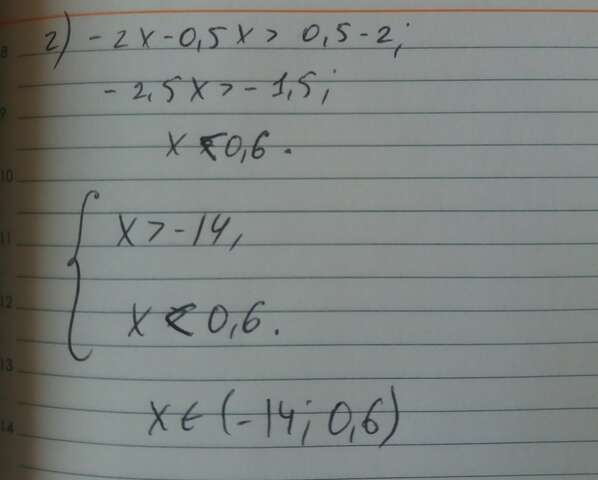 2) -2x-0,5x> 0,5-2;
-2,5x>-1,5;
x<0,6.
x>-14,
x<0,6.
x∈(-14; 0,6)
8
9
10
11
12
13
14